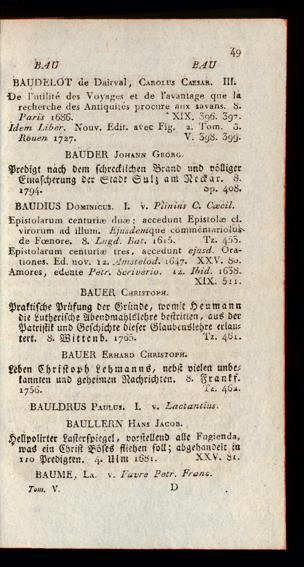 49
BAU BAU
BAUDELOT de Dairval, CAROLUS CAESAR. III.
De l'utilité des Voyages et de l'avantage que la
recherche des Antiquités procure aux savans. 8.
Paris 1686. XIX. 396. 397.
Idem Liber. Nouv. Edit. avec Fig. 2. Tom. 8.
Rouen 1727. V. 398. 399.
BAUDER JOHANN GEORG.
Predigt nach dem schrecklichen Brand und völliger
Einäscherung der Stadt Sulz am Neckar. 8.
1794. Sp. 408.
BAUDIUS DOMINICUS. I. v. Plinius C. Cæcil.
Epistolarum centuriæ duæ: accedunt Epistolæ cl.
virorum ad illum. Ejusdemque commentariolus
de Fœnore. 8. Lugd. Bat. 1615. Tz. 455.
Epistolarum centuriæ tres, accedunt ejusd. Ora-
tiones. Ed. nov. 12. Amstelod. 1647. XXV. 80.
Amores, edente Petr. Scriverio. 12. Ibid. 1638.
XIX. 511.
BAUER CHRISTOPH.
Praktische Prüfung der Gründe, womit Heumann
die Lutherische Abendmahlslehre bestritten, aus der
Patristik und Geschichte dieser Glaubenslehre erläu-
tert. 8. Wittenb. 1765. Tz. 461.
BAUER ERHARD CHRISTOPH.
Leben Christoph Lehmanns, nebst vielen unbe-
kannten und geheimen Nachrichten. 8. Frankf.
1756. Tz. 462.
BAULDRUS PAULUS. I. v. Lactantius.
BAULLERN HANS JACOB.
Hellpolirter Lasterspiegel, vorstellend alle Fugienda,
was ein Christ Böses fliehen soll; abgehandelt in
110 Predigten. 4. Ulm 1681. XXV. 81.
BAUME, LA. v. Favre Petr. Franc.
Tom. V. D